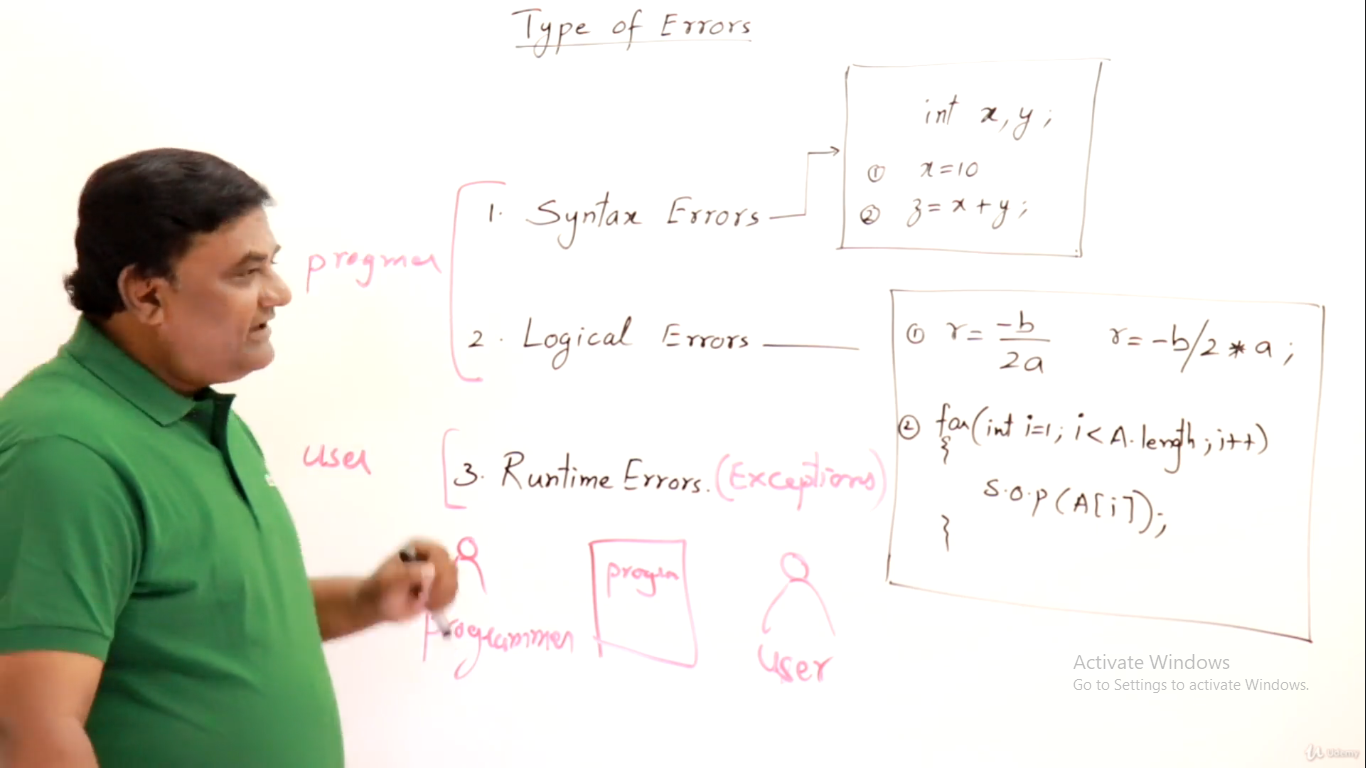 Type of Errors
int x, y;
① x=10
② z = x + y;
progmer
1. Syntax Errors
2. Logical Errors
① r = -b
2a
r = -b/2 * a;
② for(int i=1; i< A.length; i++)
{
S.O.P (A[i]);
}
user
3. Runtime Errors. (Exceptions)
programmer
progra
user
Activate Windows
Go to Settings to activate Windows.
Udemy